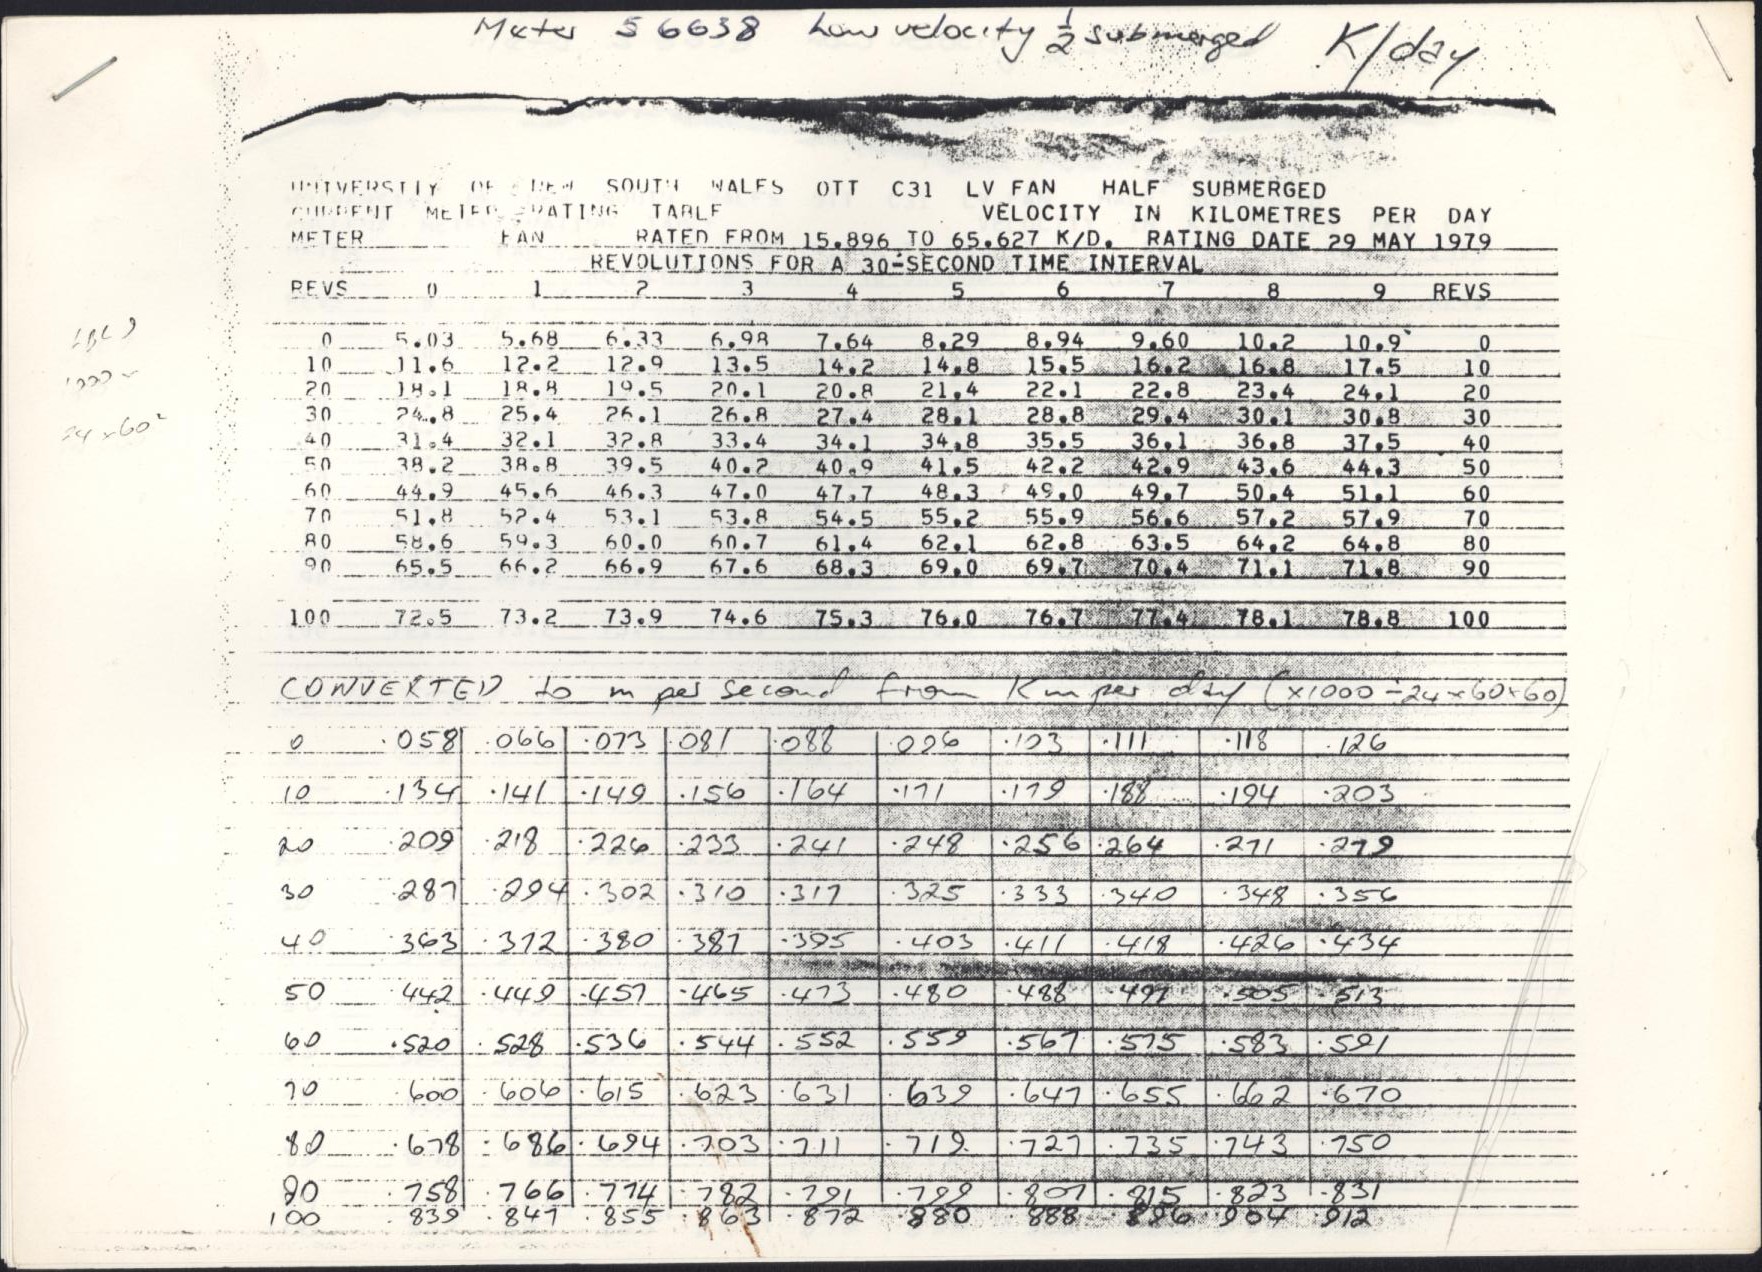 Meter 56638 Low velocity ½ submerged K/day
UNIVERSITY OF NEW SOUTH WALES OTT C31 LV FAN HALF SUBMERGED
CURRENT METER RATING TABLE VELOCITY IN KILOMETRES PER DAY
METER FAN RATED FROM 15.896 TO 65.627 K/D. RATING DATE 29 MAY 1979
REVOLUTIONS FOR A 30-SECOND TIME INTERVAL
REVS 0 1 2 3 4 5 6 7 8 9 REVS
0 5.03 5.68 6.33 6.98 7.64 8.29 8.94 9.60 10.2 10.9 0
10 11.6 12.2 12.9 13.5 14.2 14.8 15.5 16.2 16.8 17.5 10
20 18.1 18.8 19.5 20.1 20.8 21.4 22.1 22.8 23.4 24.1 20
30 24.8 25.4 26.1 26.8 27.4 28.1 28.8 29.4 30.1 30.8 30
40 31.4 32.1 32.8 33.4 34.1 34.8 35.5 36.1 36.8 37.5 40
50 38.2 38.8 39.5 40.2 40.9 41.5 42.2 42.9 43.6 44.3 50
60 44.9 45.6 46.3 47.0 47.7 48.3 49.0 49.7 50.4 51.1 60
70 51.8 52.4 53.1 53.8 54.5 55.2 55.9 56.6 57.2 57.9 70
80 58.6 59.3 60.0 60.7 61.4 62.1 62.8 63.5 64.2 64.8 80
90 65.5 66.2 66.9 67.6 68.3 69.0 69.7 70.4 71.1 71.8 90
100 72.5 73.2 73.9 74.6 75.3 76.0 76.7 77.4 78.1 78.8 100
24 x 60²
CONVERTED to m per second from Km per day (x1000 ÷ 24 x 60 x 60)
0 .058 .066 .073 .081 .088 .096 .103 .111 .118 .126
10 .134 .141 .149 .156 .164 .171 .179 .188 .194 .203
20 .209 .218 .226 .233 .241 .248 .256 .264 .271 .279
30 .287 .294 .302 .310 .317 .325 .333 .340 .348 .356
40 .363 .372 .380 .387 .395 .403 .411 .418 .426 .434
50 .442 .449 .457 .465 .473 .480 .488 .497 .505 .513
60 .520 .528 .536 .544 .552 .559 .567 .575 .583 .591
70 .600 .606 .615 .623 .631 .639 .647 .655 .662 .670
80 .678 .686 .694 .703 .711 .719 .727 .735 .743 .750
90 .758 .766 .774 .782 .791 .799 .807 .815 .823 .831
100 .839 .847 .855 .863 .872 .880 .888 .896 .904 .912